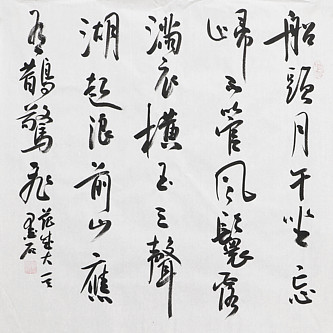 船頭月午坐忘
歸不管風鬟露
滿衣橫玉三聲
湖起浪前山應
有鵲驚飛
范成大